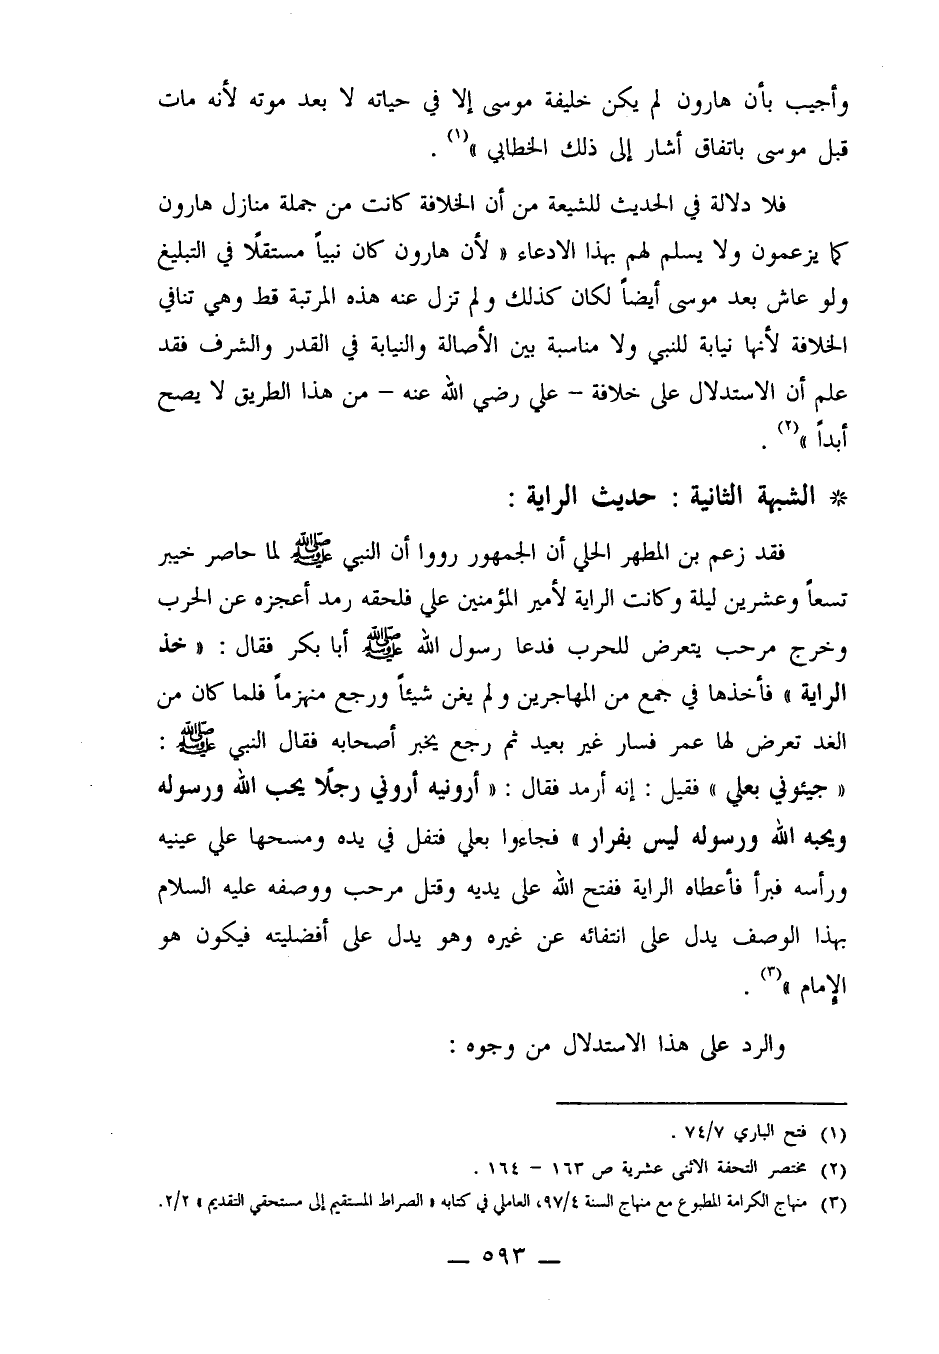 وأجيب بأن هارون لم يكن خليفة موسى إلا في حياته لا بعد موته لأنه مات
قبل موسى باتفاق أشار إلى ذلك الخطابي »(١) .
فلا دلالة في الحديث للشيعة من أن الخلافة كانت من جملة منازل هارون
كما يزعمون ولا يسلم لهم بهذا الادعاء « لأن هارون كان نبياً مستقلًا في التبليغ
ولو عاش بعد موسى أيضاً لكان كذلك ولم تزل عنه هذه المرتبة قط وهي تنافي
الخلافة لأنها نيابة للنبي ولا مناسبة بين الأصالة والنيابة في القدر والشرف فقد
علم أن الاستدلال على خلافة – علي رضي الله عنه – من هذا الطريق لا يصح
أبداً »(٢) .
* الشبهة الثانية : حديث الراية :
فقد زعم بن المطهر الحلي أن الجمهور رووا أن النبي ﷺ لما حاصر خيبر
تسعاً وعشرين ليلة وكانت الراية لأمير المؤمنين علي فلحقه رمد أعجزه عن الحرب
وخرج مرحب يتعرض للحرب فدعا رسول الله ﷺ أبا بكر فقال : « خذ
الراية » فأخذها في جمع من المهاجرين ولم يغن شيئاً ورجع منهزماً فلما كان من
الغد تعرض لها عمر فسار غير بعيد ثم رجع يخبر أصحابه فقال النبي ﷺ :
« جيئوني بعلي » فقيل : إنه أرمد فقال : « أرونيه أروني رجلًا يحب الله ورسوله
ويحبه الله ورسوله ليس بفرار » فجاءوا بعلي فتفل في يده ومسحها علي عينيه
ورأسه فبرأ فأعطاه الراية ففتح الله على يديه وقتل مرحب ووصفه عليه السلام
بهذا الوصف يدل على انتفائه عن غيره وهو يدل على أفضليته فيكون هو
الإمام »(٣) .
والرد على هذا الاستدلال من وجوه :
(١) فتح الباري ٧٤/٧ .
(٢) مختصر التحفة الاثنى عشرية ص ١٦٣ – ١٦٤ .
(٣) منهاج الكرامة المطبوع مع منهاج السنة ٩٧/٤، العاملي في كتابه « الصراط المستقيم إلى مستحقي التقديم » ٢/٢.
— ٥٩٣ —